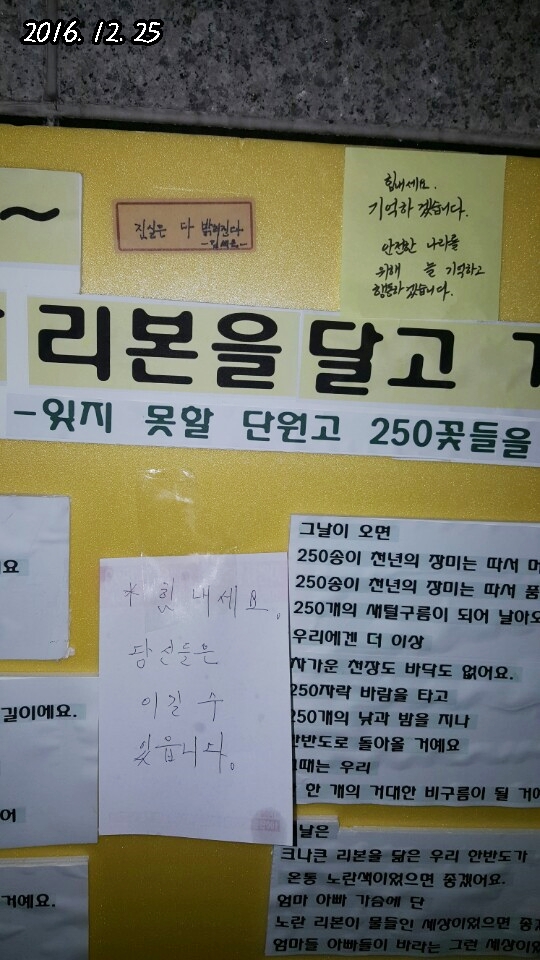 2016. 12. 25
~
진실은 다 밝혀진다
힘내세요.
기억하겠습니다.
안전한 나라를
위해 늘 기억하고
행동하겠습니다.
리본을 달고
-잊지 못할 단원고 250꽃들을
요
길이에요.
어
거예요.
* 힘 내세요.
당신들은
이길 수
있읍니다.
그날이 오면
250송이 천년의 장미는 따서 머
250송이 천년의 장미는 따서 품
250개의 새털구름이 되어 날아오
우리에겐 더 이상
차가운 천장도 바닥도 없어요.
250자락 바람을 타고
250개의 낮과 밤을 지나
한반도로 돌아올 거예요
때는 우리
한 개의 거대한 비구름이 될 거예
날은
크나큰 리본을 닮은 우리 한반도가
온통 노란색이었으면 좋겠어요.
엄마 아빠 가슴에 단
노란 리본이 물들인 세상이었으면 좋겠
엄마들 아빠들이 바라는 그런 세상이